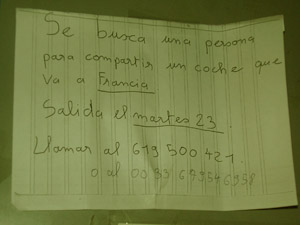 Se busca una persona
para compartir un coche que
va a Francia
Salida el martes 23.
Llamar al 619 500 421
o al 00 33 679546958